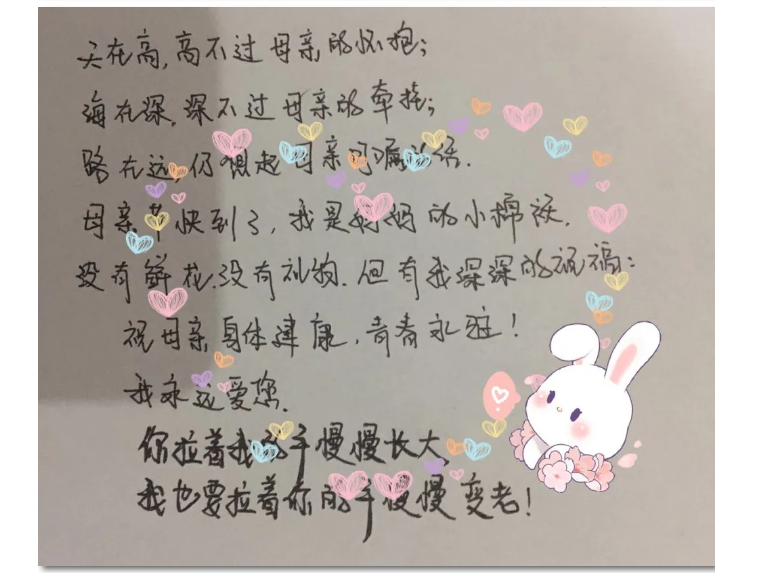 天在高,高不过母亲的怀抱;
海在深,深不过母亲的牵挂;
路在远,仍想起母亲叮嘱的话.
母亲节快到了,我是妈妈的小棉袄.
没有鲜花.没有礼物.但有我深深的祝福:
祝母亲身体建康,青春永驻!
我永远爱您.
你拉着我的手慢慢长大,
我也要拉着你的手慢慢变老!